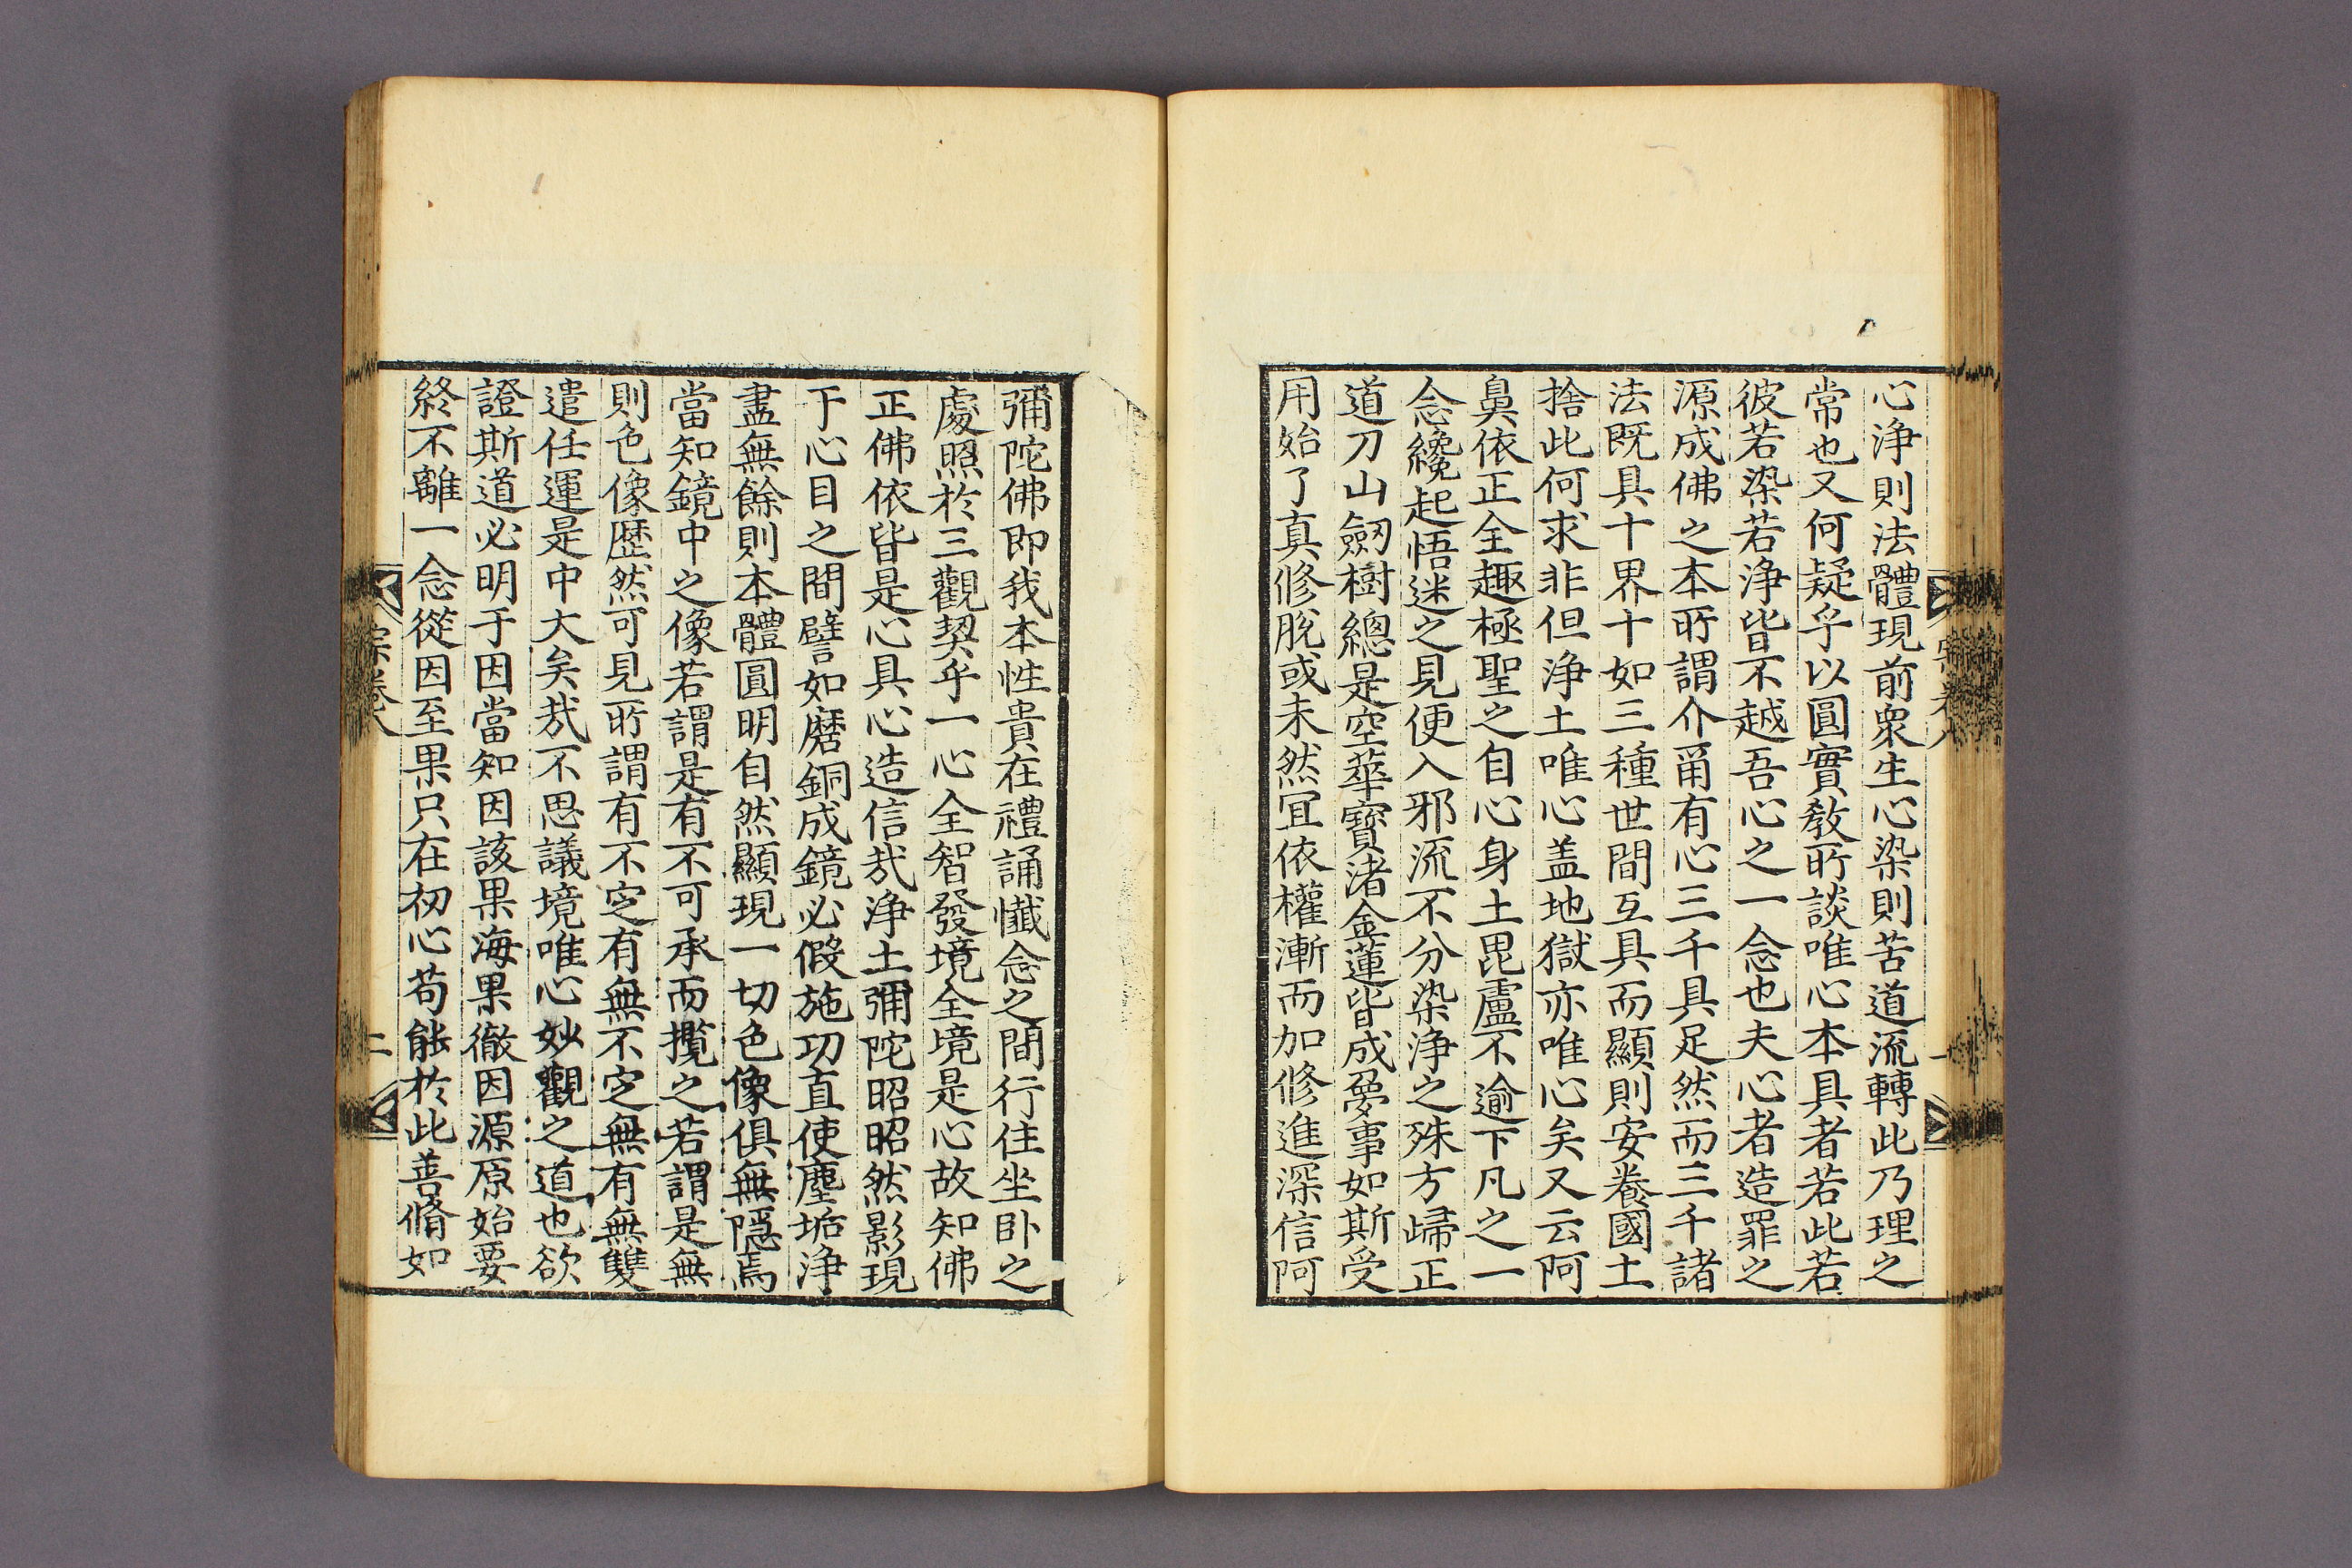 心淨則法體現前衆生心染則苦道流轉此乃理之
常也又何疑乎以圓實教所談唯心本具者若此若
彼若染若淨皆不越吾心之一念也夫心者造罪之
源成佛之本所謂介甬有心三千具足然而三千諸
法既具十界十如三種世間互具而顯則安養國土
捨此何求非但淨土唯心盖地獄亦唯心矣又云阿
鼻依正全趣極聖之自心身土毘盧不逾下凡之一
念纔起悟迷之見便入邪流不分染淨之殊方歸正
道刀山劒樹總是空華寶渚金蓮皆成夢事如斯受
用始了真修脫或未然冝依權漸而加修進深信阿
彌陀佛即我本性貴在禮誦懺念之間行住坐卧之
處照於三觀契乎一心全智發境全境是心故知佛
正佛依皆是心具心造信哉淨土彌陀昭昭然影現
于心目之間譬如磨銅成鏡必假施功直使塵垢淨
盡無餘則本體圓明自然顯現一切色像俱無隱焉
當知鏡中之像若謂是有不可承而攬之若謂是無
則色像歷然可見所謂有不定有無不定無有無雙
遣任運是中大矣哉不思議境唯心妙觀之道也欲
證斯道必明于因當知因該果海果徹因源原始要
終不離一念從因至果只在初心苟能於此善脩如
宗卷八
二